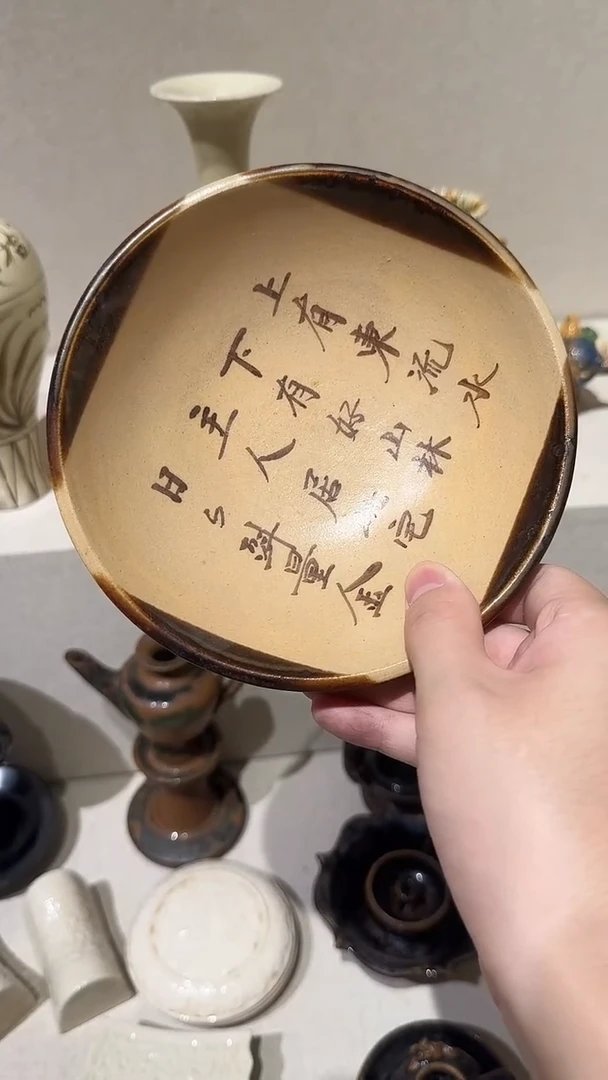 上有東流水
下有好山林
主人居此宅
日々㪷量金